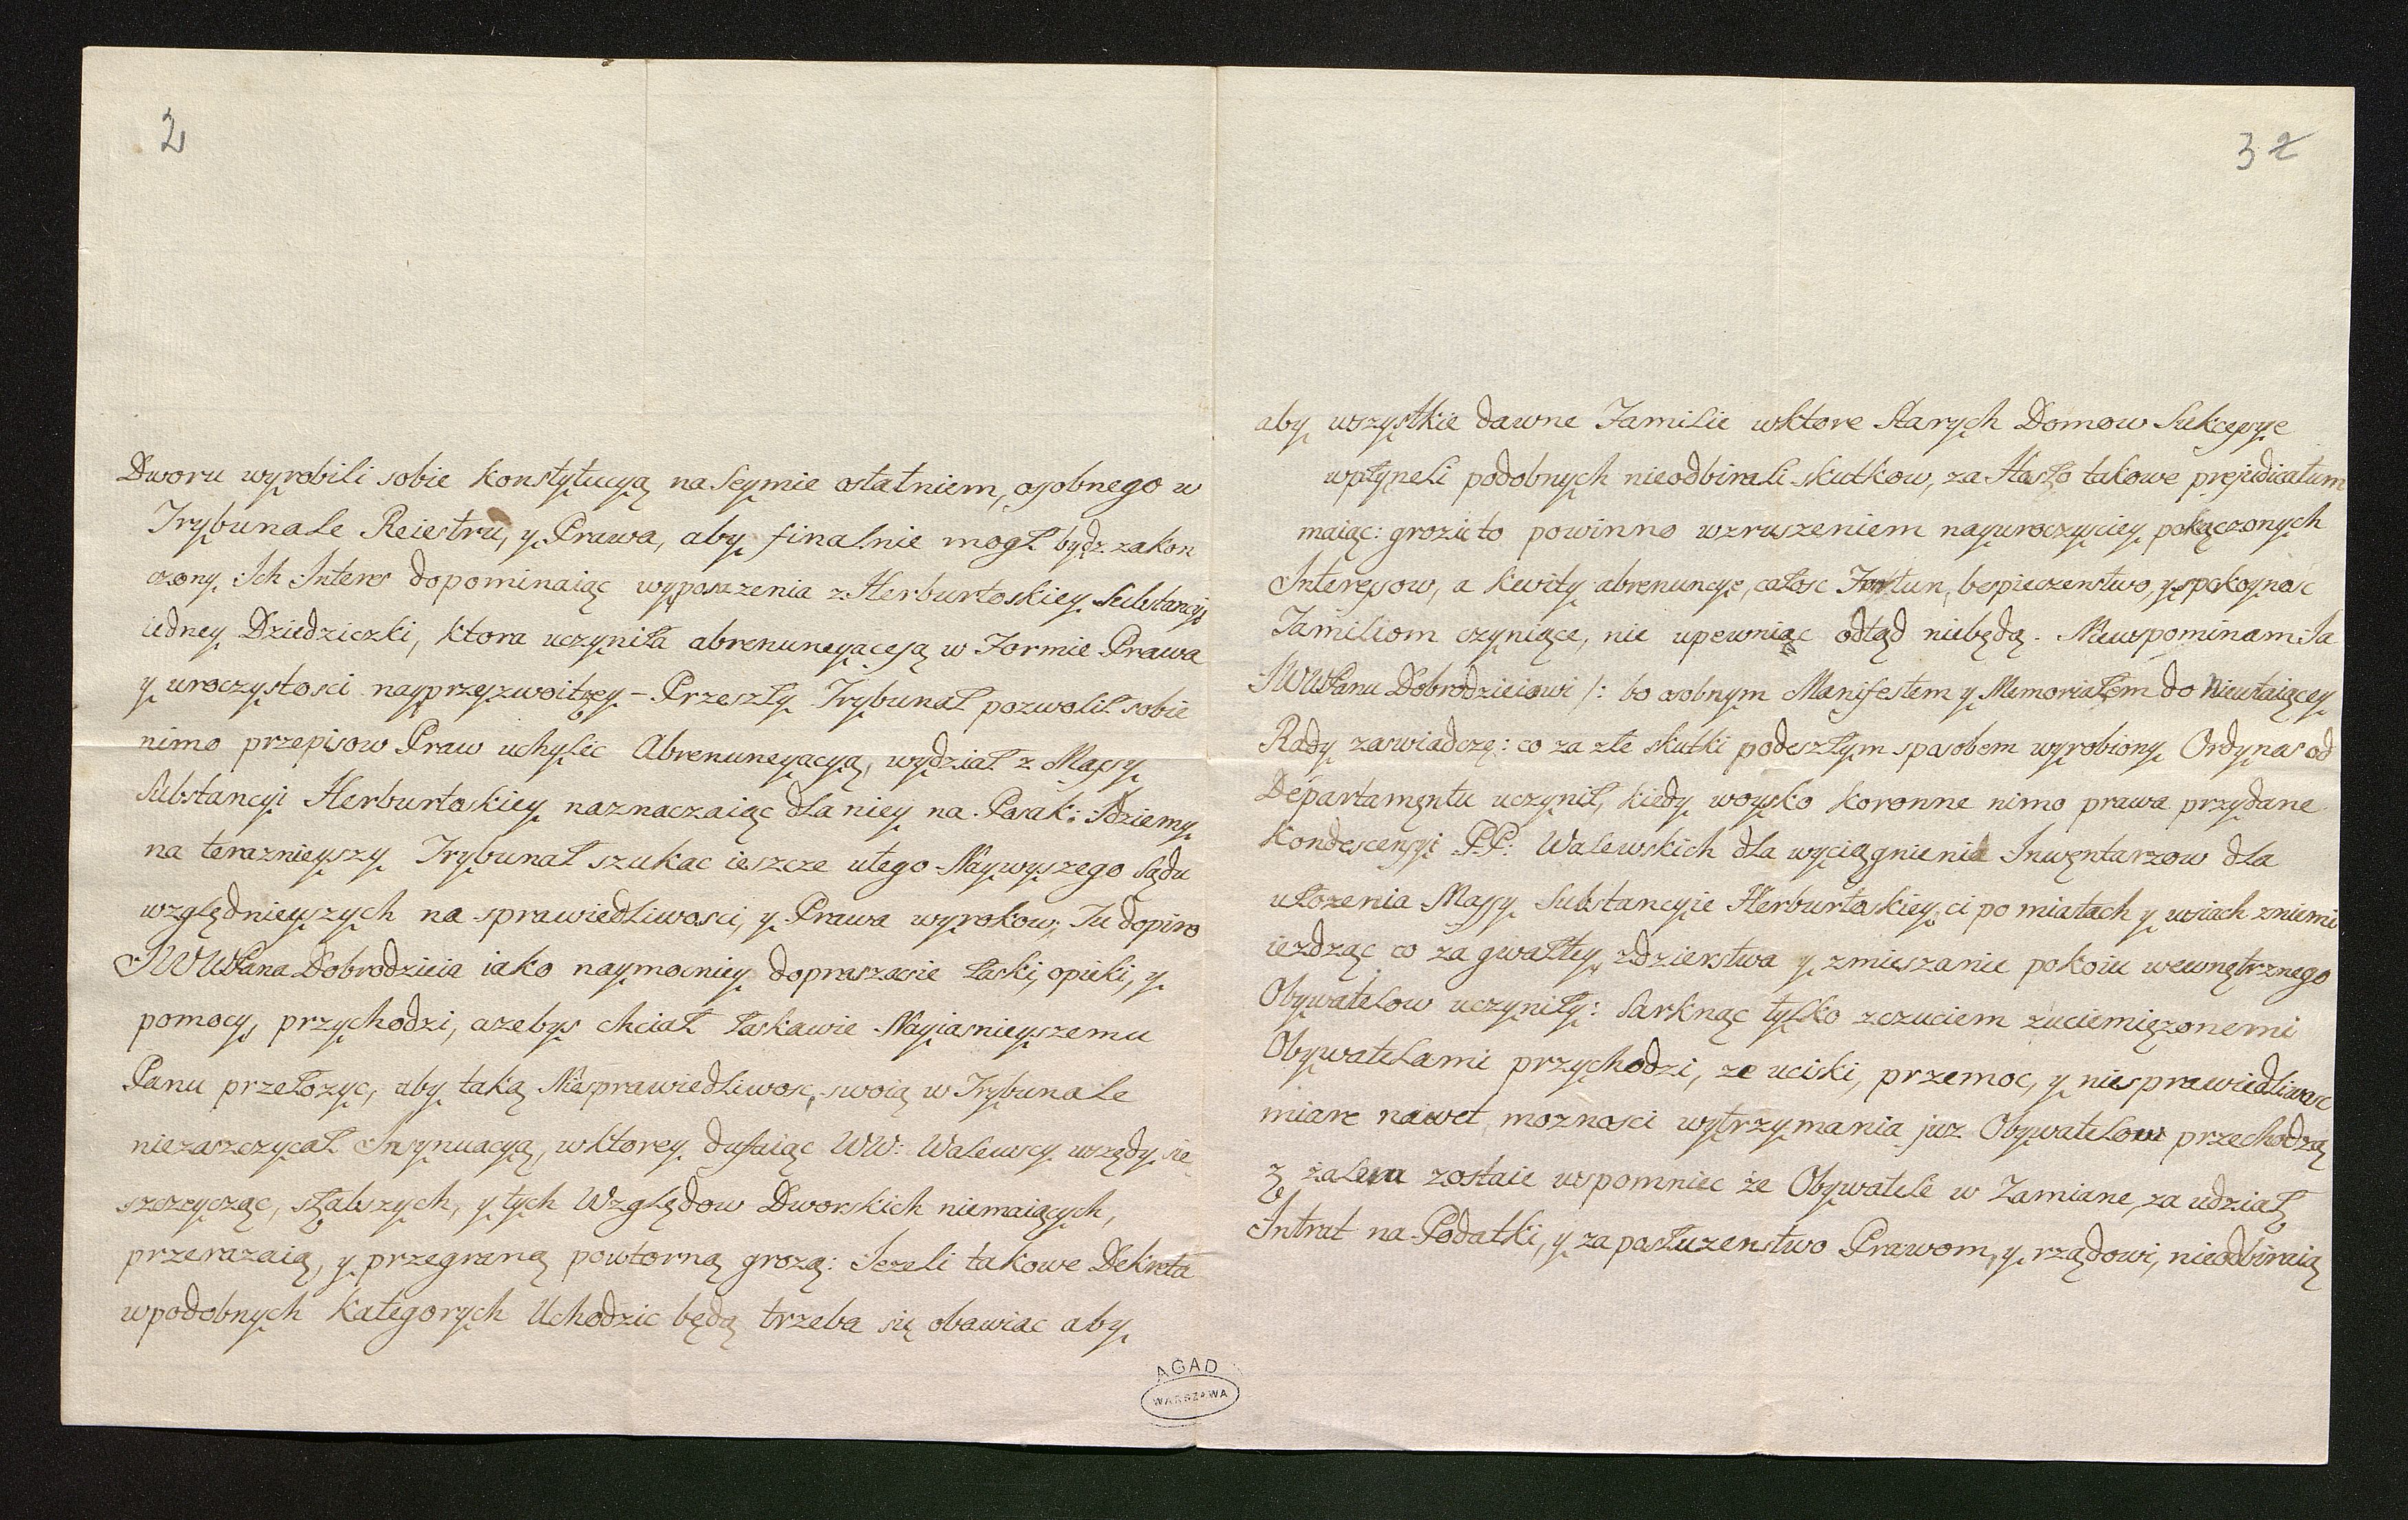 2
Dworu wyrobili sobie konstytucyą na Seymie ostatniem, osobnego w
Trybunale Reiestru, y Prawa, aby finalnie mogł bydz zakon
czony Ich Interes dopominaiąc wyposazenia z Herburtoskiey Substancyi
iedney Dziedziczki, ktora uczyniła abrenuncyacyją w Formie Prawa
y uroczystosci nayprzyzwoitzey – Przeszły Trybunał pozwolił sobie
nimo przepisow Praw uchylic Abrenuncyacyą, wydział z Massy
Substancyi Herburtoskiey naznaczaiąc dla niey na Posak: Idziemy
na teraznieyszy Trybunał szukac ieszcze utego Naywyszego Sądu
względnieyszych na sprawiedliwosci, y Prawa wyrokow; Tu dopiro
JWWPana Dobrodzieia iako naymocniey dopraszacsie łaski, opieki, y
pomocy, przychodzi, azebys chciał łaskawie Nayiasnieyszemu
Panu przełozyc, aby taką Niesprawiedliwosc, swoią w Trybunale
niezaszczycał Insynuacyą, wktorey dufaiąc WW: Walewscy wszędy sie
szczycząc, słabszych, y tych Względow Dworskich niemaiących,
przerazaią, y przegraną powtorną grozą: Jezeli takowe Dekreta
wpodobnych kategorych Uchodzic będą trzeba się obawiac aby
3 2
aby wszystkie dawne Familie wktore Starych Domow Sukcessye
wpłyneli podobnych nieodbirali skutkow, za Hasło takowe prejudicatum
maiąc: grozić to powinno wzruszeniem nayuroczysciey połączonych
Interessow, a kwity abrenuncye, całosc Fortun, bespieczenstwo, y spokoynosc
Familiom czyniące, nie upewniąc odtąd niebędą. Niewspominam Ia
JWWPanu Dobrodzieiowi /: bo osobnym Manifestem y Memoriałem do Nieustaiącey
Rady zaswiadczę: co za złe skutki podeszłym sposobem wyrobiony Ordynas od
Departamentu uczynił, kiedy woysko koronne nimo prawa przydane
Kondescensyi PP: Walewskich dla wyciągnienia Inwentarzow dla
ułozenia Massy Substancyie Herburtoskiey; ci po miastach y wsiach zniemi
iezdząc co za gwałty, zdzierstwa y zmieszanie pokoiu wewnętrznego
Obywatelow uczyniły: Sarknąc tylko zczuciem zuciemięzonemi
Obywatelami przychodzi, ze uciski, przemoc, y niesprawiedliwosc
miare nawet moznosci wytrzymania juz Obywatelow przechodzą
z żalem zostaie wspomniec że Obywatele w Zamiane za udział
Intrat na Podatki, y za posłuzenstwo Prawom, y rządowi, nieodbiraią
AGAD
WARSZAWA